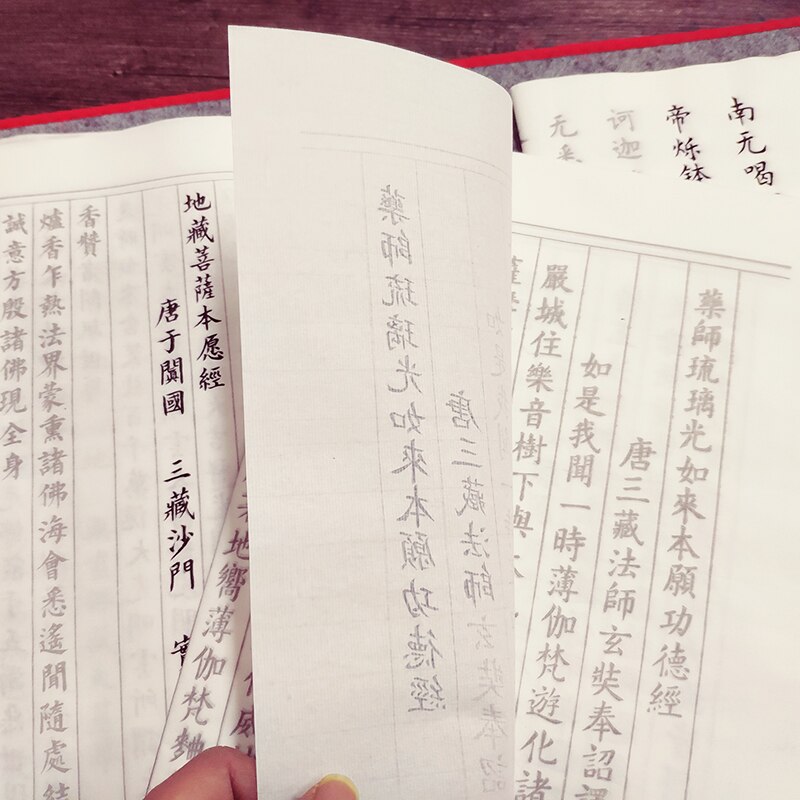 南无喝
帝烁钵
诃迦
无
藥師琉璃光如來本願功德經
唐三藏法師玄奘奉詔譯
如是我聞一時薄伽梵遊化諸
嚴城住樂音樹下與大
藥師琉璃光如來本願功德經
唐三藏法師玄奘奉詔
地藏菩薩本愿經
唐于闐國 三藏沙門 實
香贊
爐香乍熱法界蒙熏諸佛海會悉遙聞隨處結
誠意方殷諸佛現全身
地嚮薄伽梵